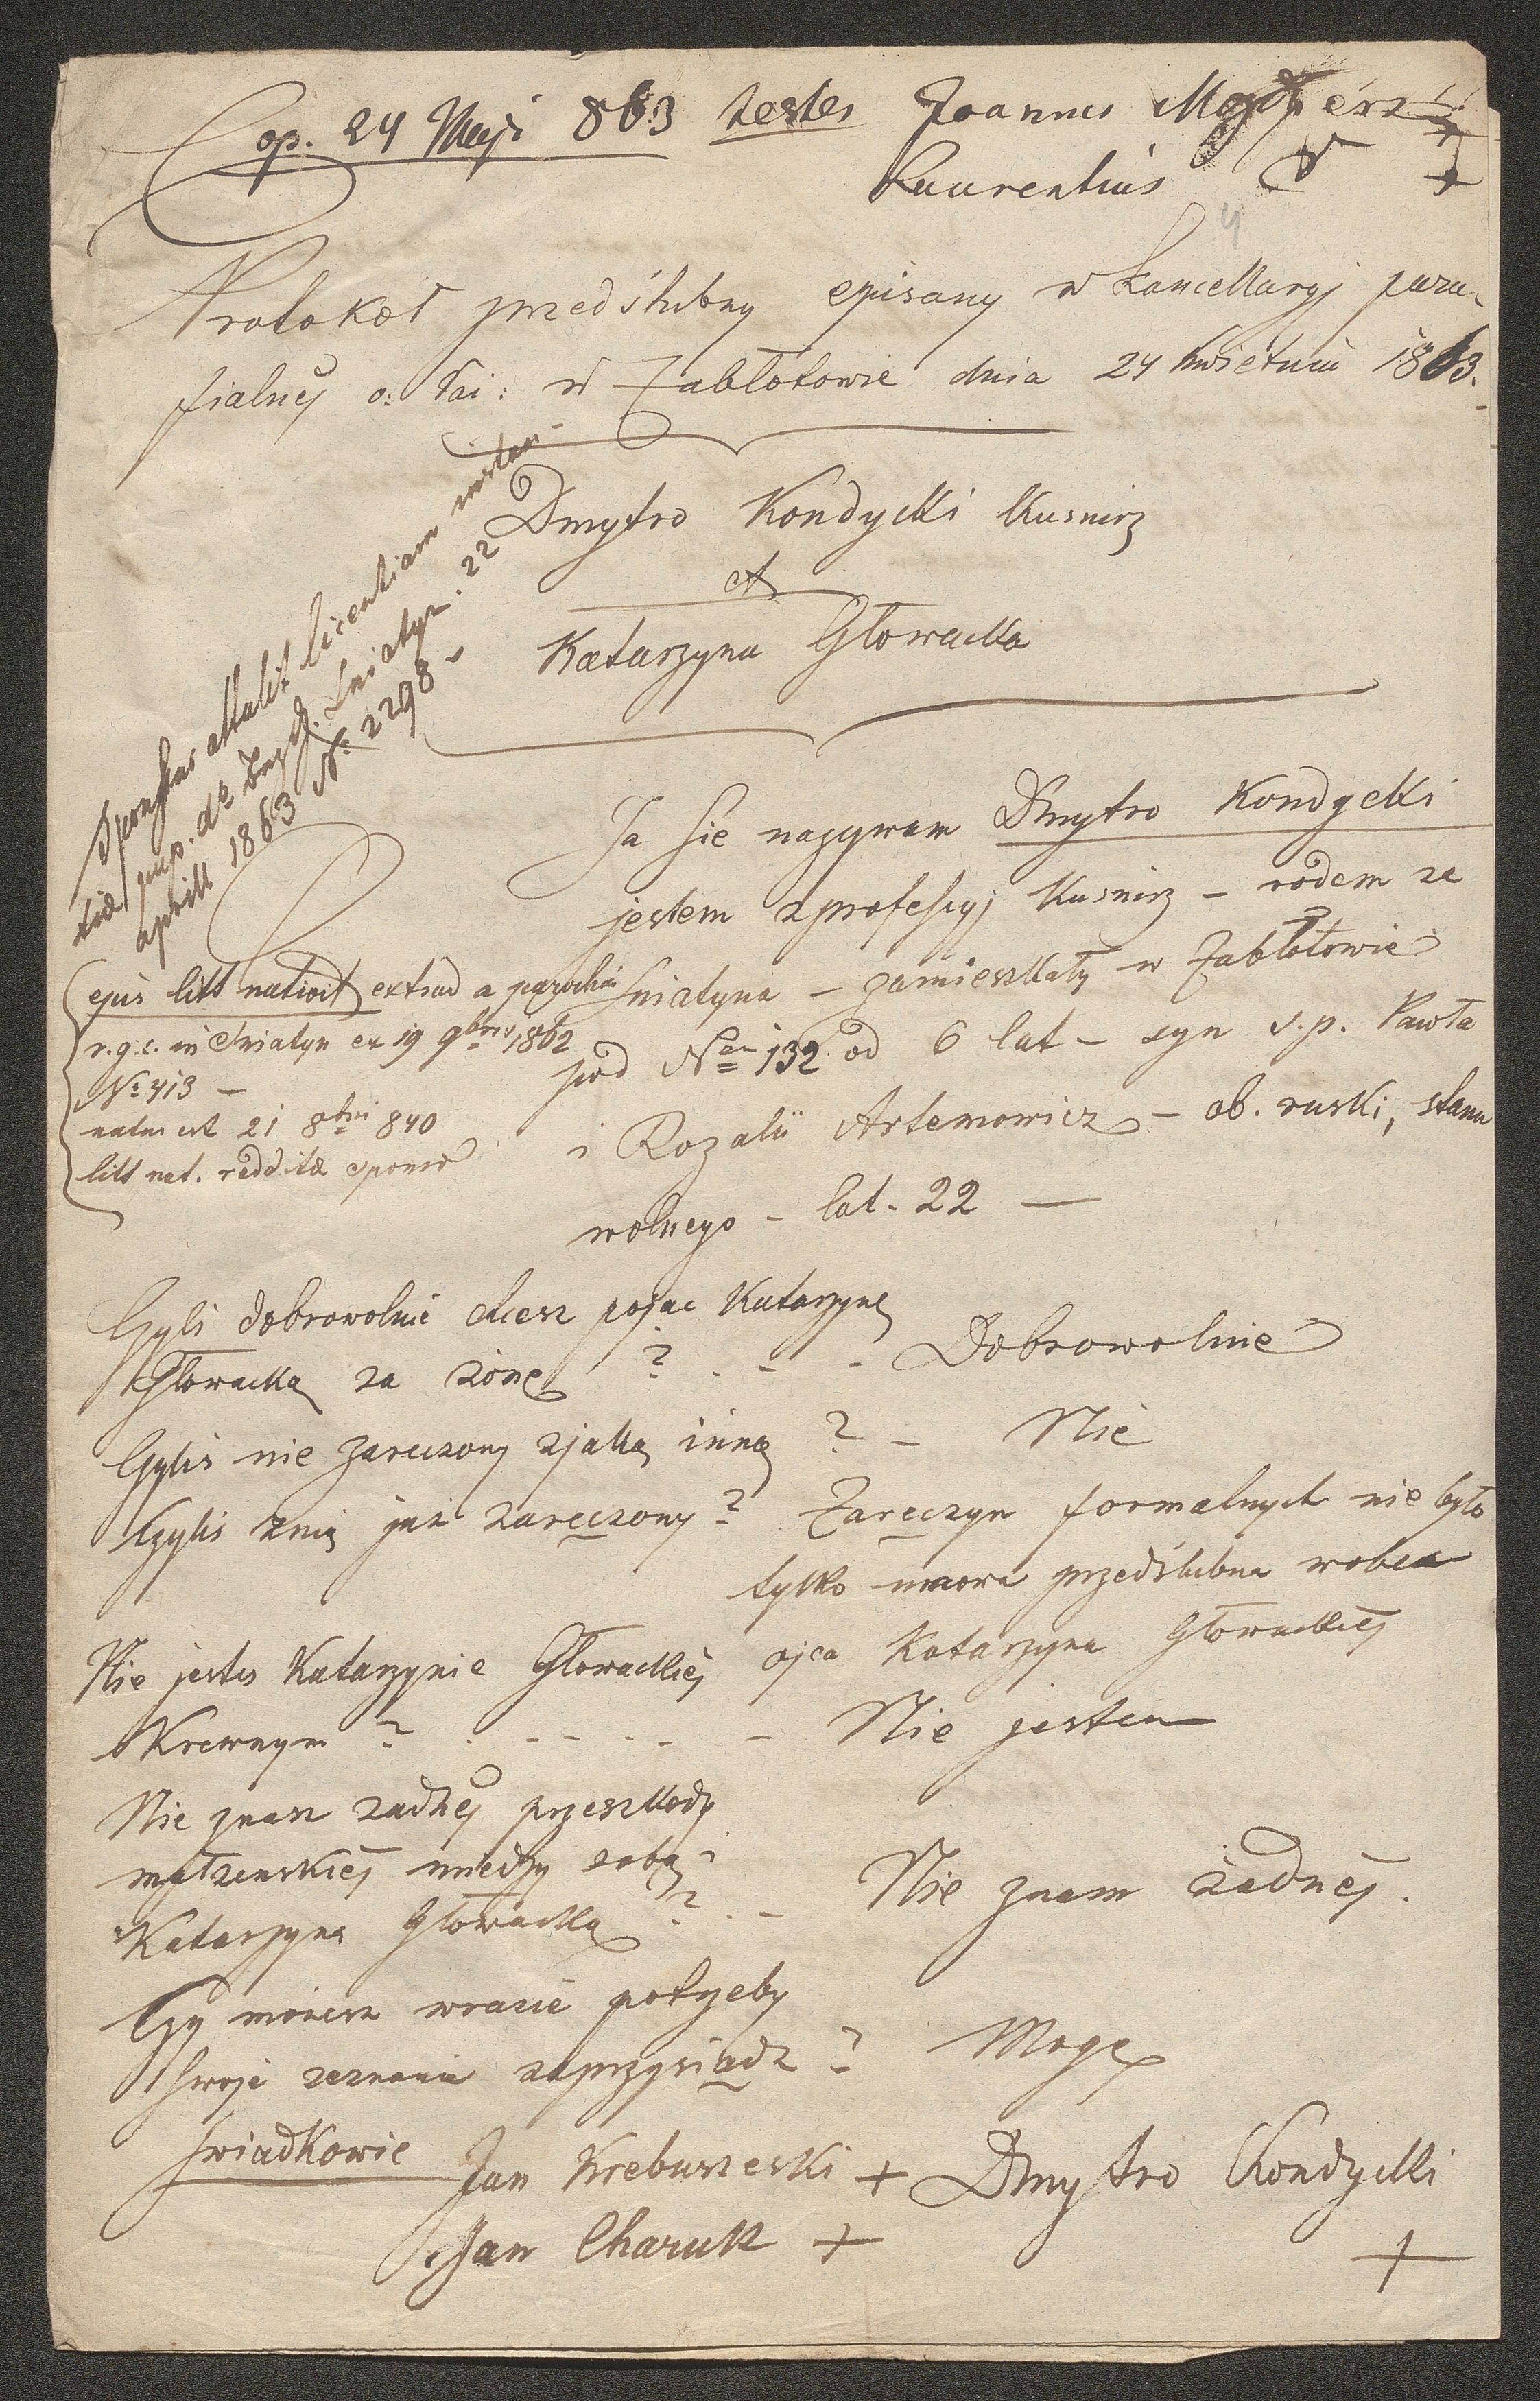 Cop. 24 Maji 863 testes Joannes
Laurentius
4
Protokoł przedślubny spisany w kancellaryj para-
fialnej o: łaċ: w Zabłotowie dnia 24 kwietnia 1863.
Dmytro Kondycki Kusnirz
et
Katarzyna Głowacka
Sponsus attulit licentiam
april 1863 N: 2298
Ja sie nazywam Dmytro Kondycki
jestem z professyj Kusnirz – rodem ze
Sniatyna – zamieszkały w Zabłotowie
pod Nem 132 od 6 lat – syn s.p. Pawła
i Rozalii Artemowicz – ob. ruski, stanu
wolnego – lat. 22 —
ejus litt nativit extrad a parochia
r.g.c. in Sniatyn ex 19 9bris 1862
No 413 –
natus est 21 8bri 840
litt nat. redditae sponso
Czyli dobrowolnie chcesz pojac Katarzynę
Głowacką za żonę ? . - - Dobrowolnie
Czyliś nie zaręczony z jaką inną ? – Nie
Czyliś z nią już zaręczony ? Zaręczyn formalnych nie było
tylko umowa przedślubna wobec
Nie jestes Katarzynie Głowackiej ojca Katarzyna Głowackiej
Krewnym ? . - - - - - Nie jestem
Nie znasz żadnej przeszkody
małżenskiej miedzy sobą i
Katarzyną Głowacką ? . - Nie znam żadnej.
Czy możesz wrazie potrzeby
swoje zeznanie zaprzysiądz ? Mogę
Swiadkowie Jan Krebuszeski + Dmytro Kondycki
Jan Charuk + +